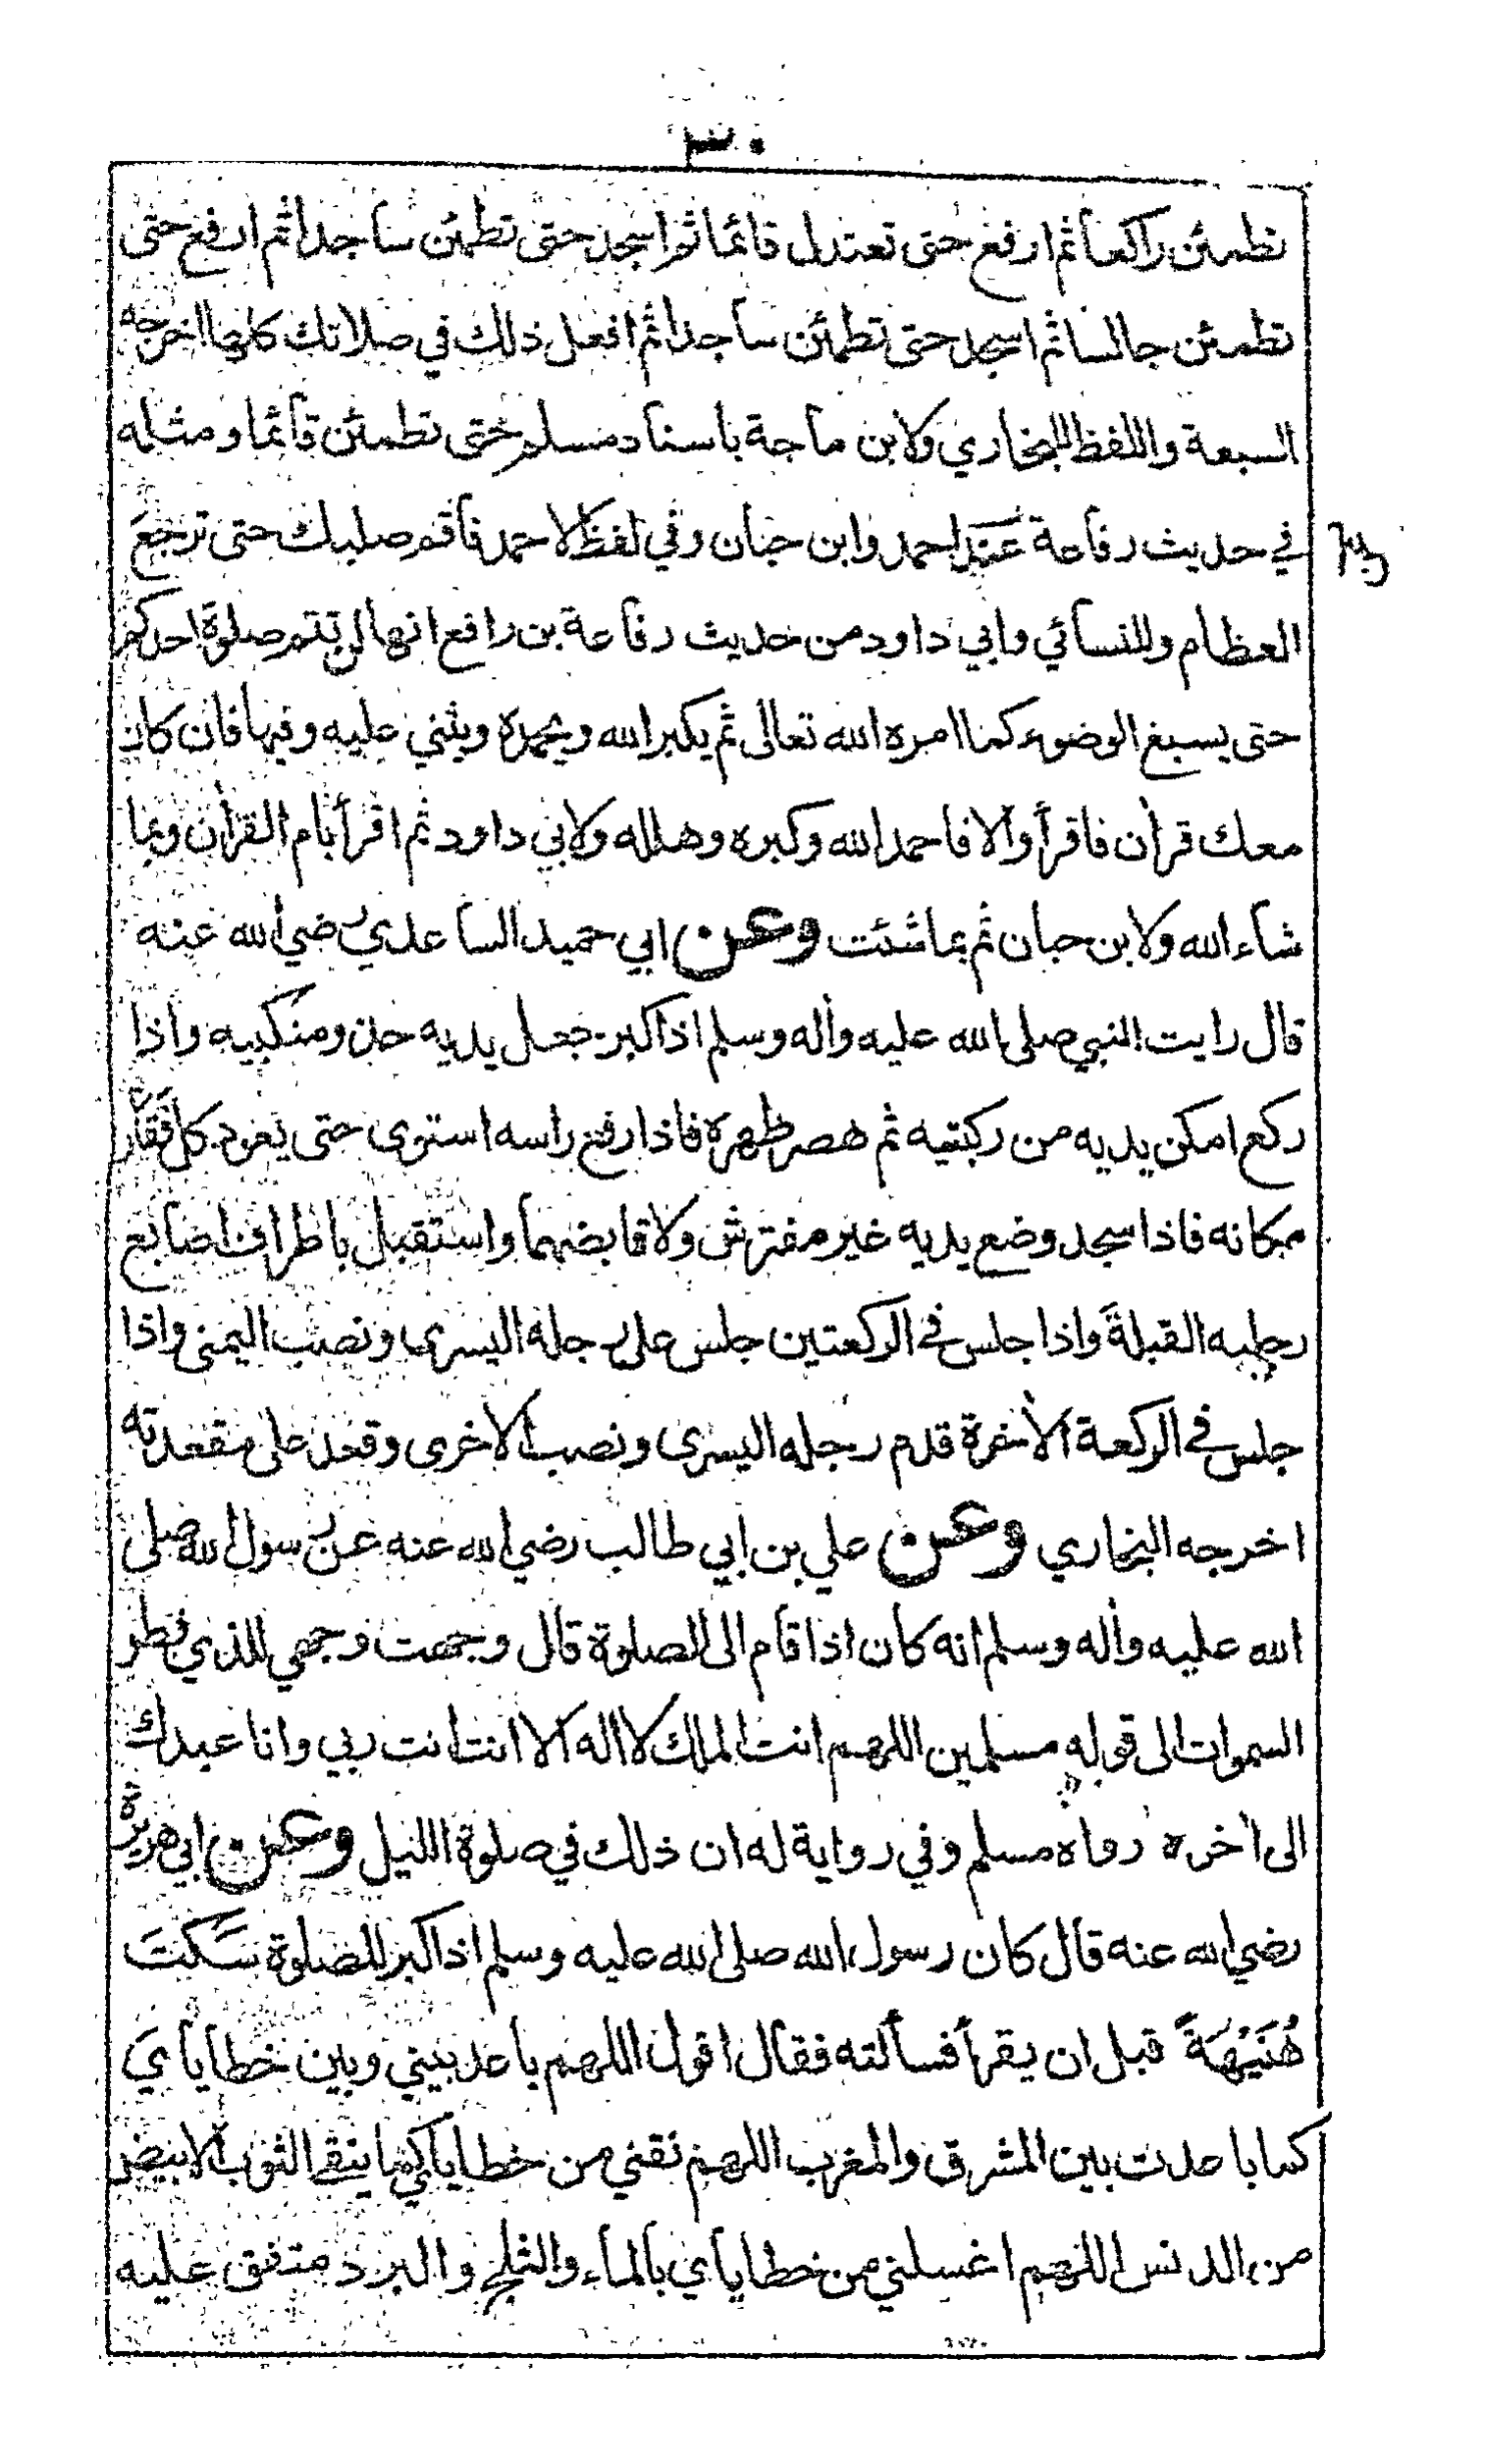 ٣٠
تطمئن راكعا ثم ارفع حتى تعتدل قائما ثم اسجد حتى تطمئن ساجدا ثم ارفع حتى
تطمئن جالسا ثم اسجد حتى تطمئن ساجدا ثم افعل ذلك في صلاتك كلها اخرجه
السبعة واللفظ للبخاري ولابن ماجة باسناد مسلم حتى تطمئن قائما ومثله
في حديث رفاعة عند احمد وابن حبان وفي لفظ لاحمد فاقم صلبك حتى ترجع
العظام وللنسائي وابي داود من حديث رفاعة بن رافع انها لن تتم صلوة احدكم
حتى يسبغ الوضوء كما امره الله تعالى ثم يكبر الله ويحمده ويثني عليه وفيها فان كان
معك قرأن فاقرأ والا فاحمد الله وكبره وهلله ولابي داود ثم اقرأ بام القرأن وبما
شاء الله ولابن حبان ثم بما شئت وعن ابي حميد الساعدي رضي الله عنه
قال رايت النبي صلى الله عليه وأله وسلم اذا كبر جعل يديه حذو منكبيه واذا
ركع امكن يديه من ركبتيه ثم هصر ظهره فاذا رفع راسه استوى حتى يعود كل فقار
مكانه فاذا سجد وضع يديه غير مفترش ولا قابضهما واستقبل باطراف اصابع
رجليه القبلة واذا جلس في الركعتين جلس على رجله اليسرى ونصب اليمنى واذا
جلس في الركعة الأخرة قدم رجله اليسرى ونصب الاخرى وقعد على مقعدته
اخرجه البخاري وعن علي بن ابي طالب رضي الله عنه عن رسول الله صلى
الله عليه وأله وسلم انه كان اذا قام الى الصلوة قال وجهت وجهي للذي فطر
السموات الى قوله مسلمين اللهم انت الملك لا اله الا انت انت ربي وانا عبدك
الى أخره رواه مسلم وفي رواية له ان ذلك في صلوة الليل وعن ابي هريرة
رضي الله عنه قال كان رسول الله صلى الله عليه وسلم اذا كبر للصلوة سَكَتَ
هُنَيْهَةً قبل ان يقرأ فسألته فقال اقول اللهم باعد بيني وبين خطاياي
كما باعدت بين المشرق والمغرب اللهم نقني من خطاياي كما ينقى الثوب الابيض
من الدنس اللهم اغسلني من خطاياي بالماء والثلج والبرد متفق عليه